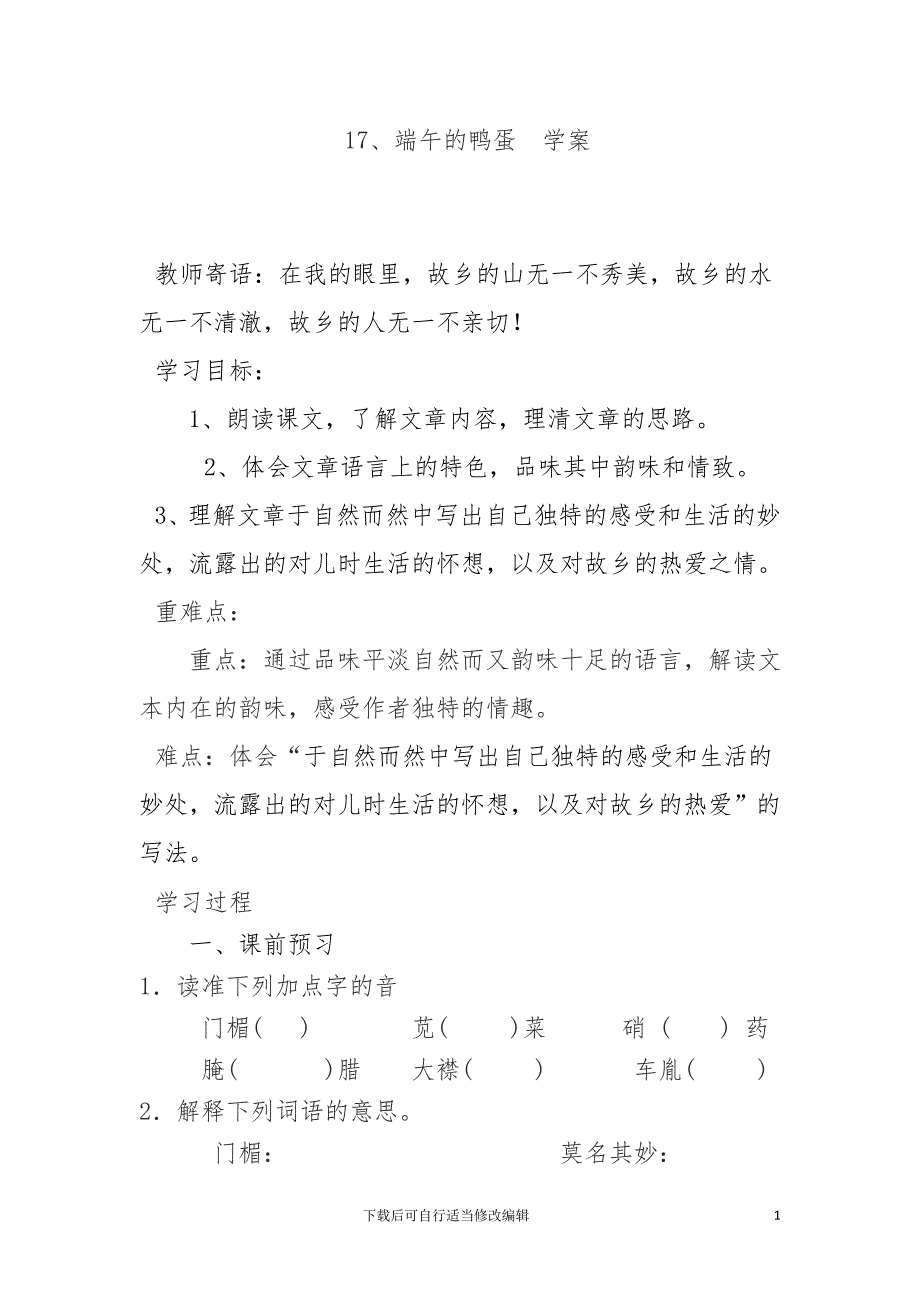 17、端午的鸭蛋　学案
教师寄语：在我的眼里，故乡的山无一不秀美，故乡的水
无一不清澈，故乡的人无一不亲切！
学习目标：
1、朗读课文，了解文章内容，理清文章的思路。
2、体会文章语言上的特色，品味其中韵味和情致。
3、理解文章于自然而然中写出自己独特的感受和生活的妙
处，流露出的对儿时生活的怀想，以及对故乡的热爱之情。
重难点：
重点：通过品味平淡自然而又韵味十足的语言，解读文
本内在的韵味，感受作者独特的情趣。
难点：体会“于自然而然中写出自己独特的感受和生活的
妙处，流露出的对儿时生活的怀想，以及对故乡的热爱”的
写法。
学习过程
一、课前预习
1．读准下列加点字的音
门楣(　)　　　苋(　　)菜　　　硝（　　）药
腌(　　　)腊　　大襟(　　)　　　车胤(　　)
2．解释下列词语的意思。
门楣：　　　　　　　　　莫名其妙：
下载后可自行适当修改编辑　　1